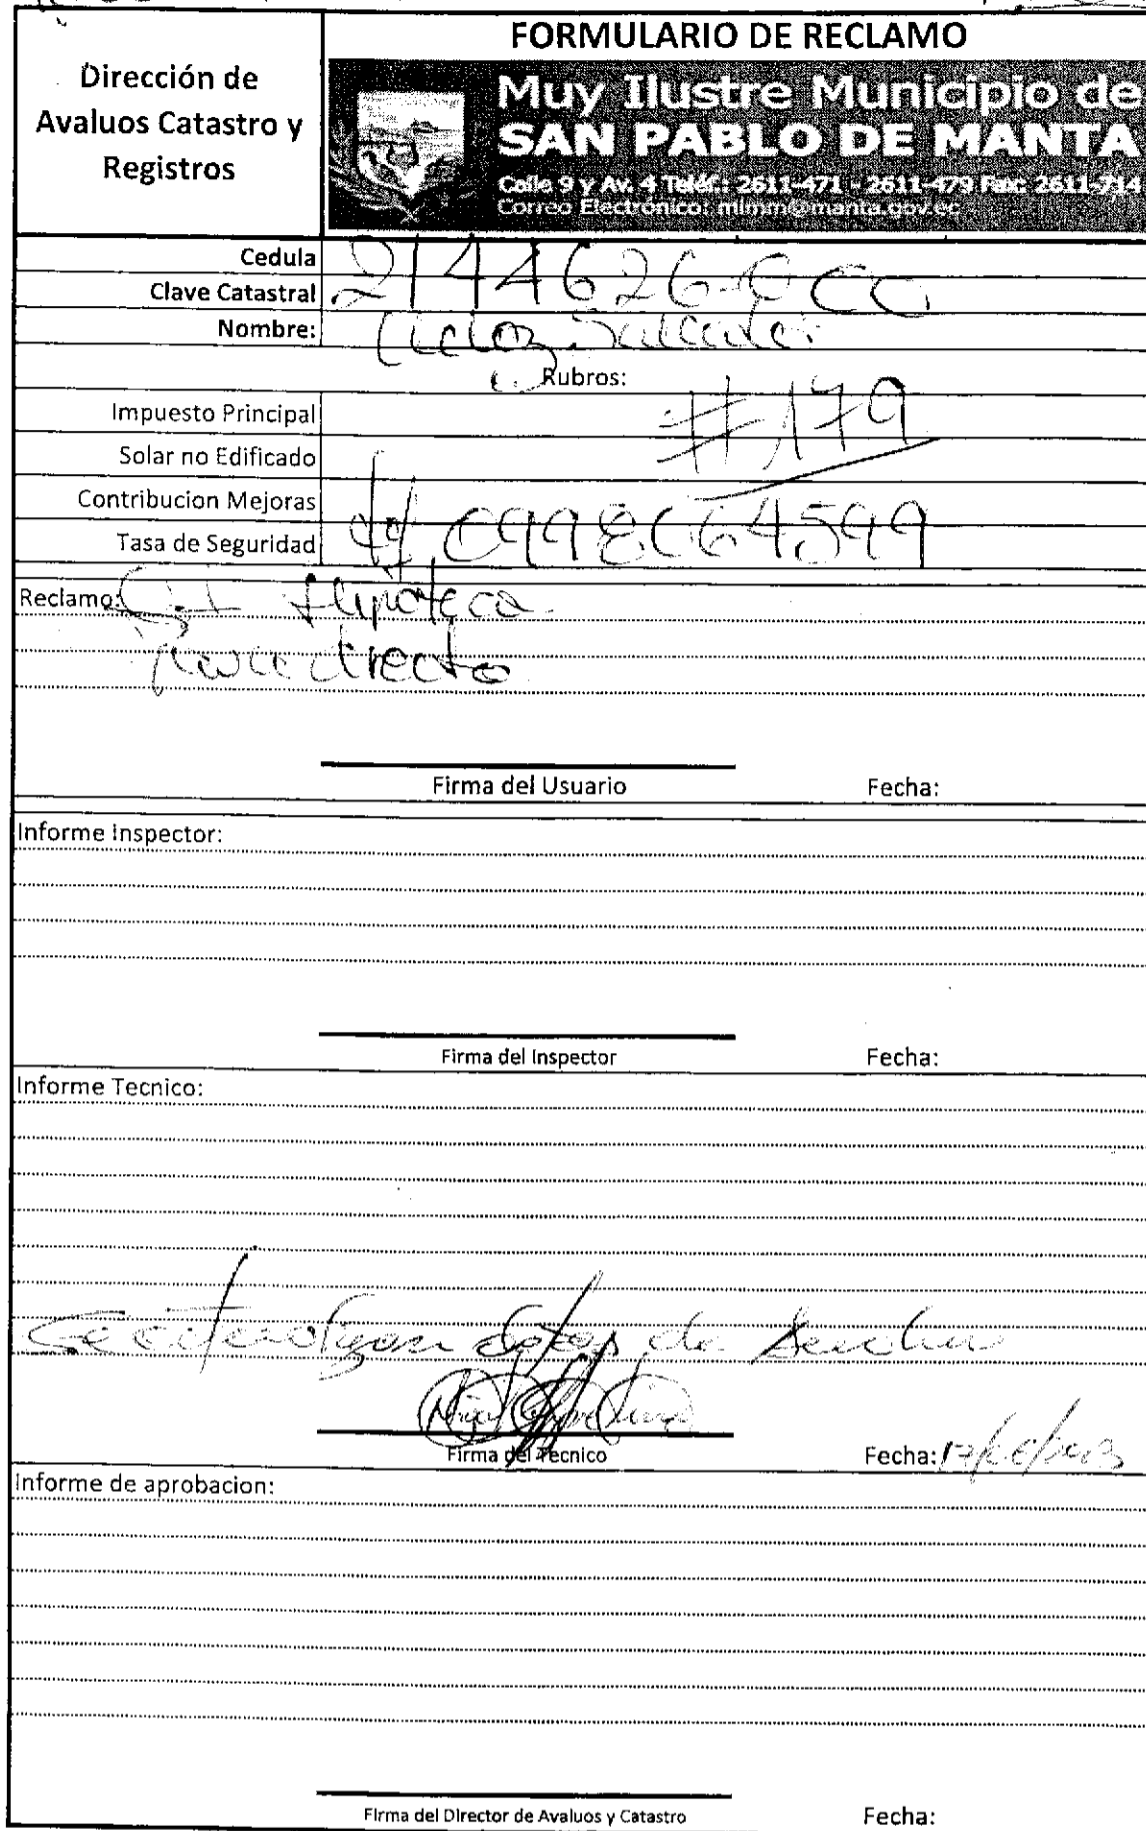 FORMULARIO DE RECLAMO
Dirección de
Avaluos Catastro y
Registros
Muy Ilustre Municipio de
SAN PABLO DE MANTA
Calle 9 y Av. 4 Telef.: 2611-471 - 2611-479 Fax: 2611-714
Correo Electrónico: mimm@manta.gov.ec
Cedula
Clave Catastral 2144626000
Nombre:
Rubros:
Impuesto Principal #179
Solar no Edificado
Contribucion Mejoras
Tasa de Seguridad 0998064599
Reclamo: Hipoteca
directo
Firma del Usuario Fecha:
Informe Inspector:
Firma del Inspector Fecha:
Informe Tecnico:
de
Firma del Tecnico Fecha:
Informe de aprobacion:
Firma del Director de Avaluos y Catastro Fecha: